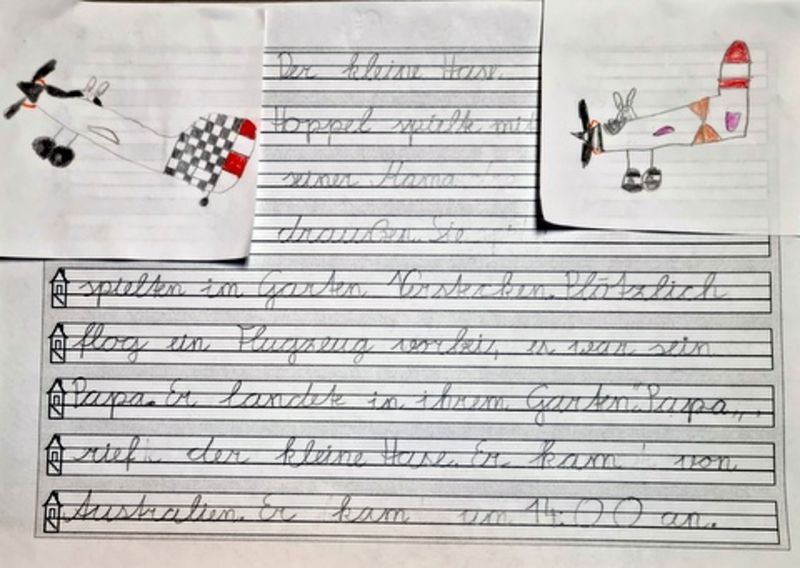 Der kleine Hase
Hoppel spielte mit
seiner Mama
draußen. Sie
spielten im Garten Verstecken. Plötzlich
flog ein Flugzeug vorbei, es war sein
Papa. Er landet in ihrem Garten."Papa„,
rief der kleine Hase. Er kam von
Australien. Er kam um 14:00 an.